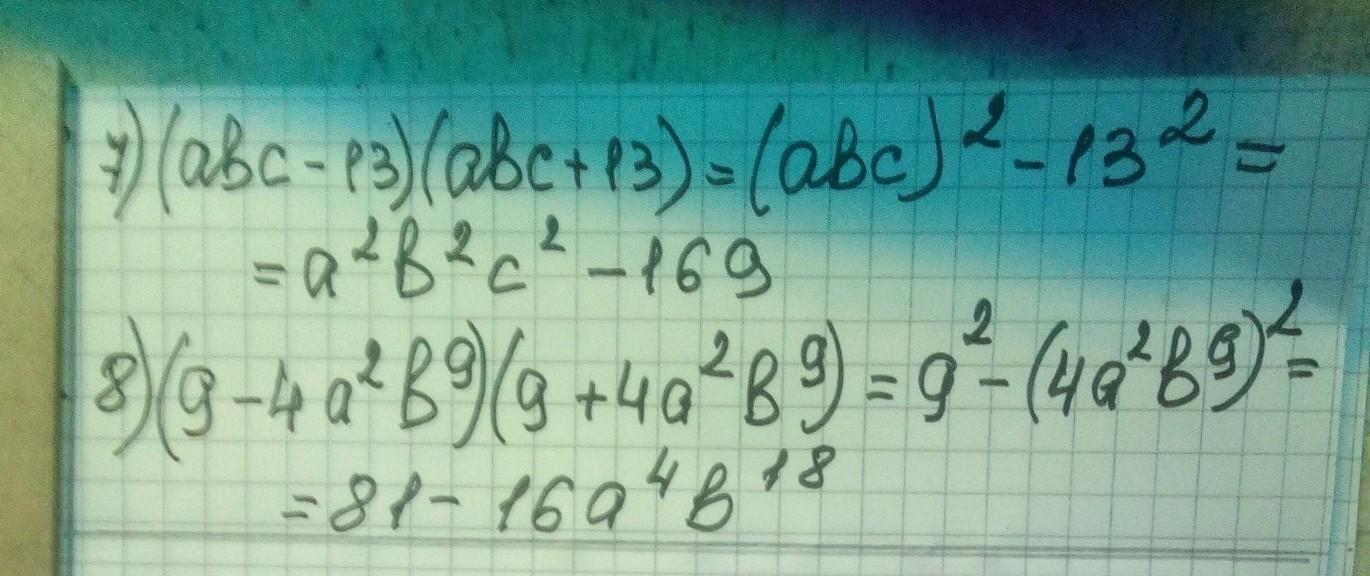 7) (abc - 13)(abc + 13) = (abc)² - 13² =
= a²b²c² - 169
8) (9 - 4a²b⁹)(9 + 4a²b⁹) = 9² - (4a²b⁹)² =
= 81 - 16a⁴b¹⁸